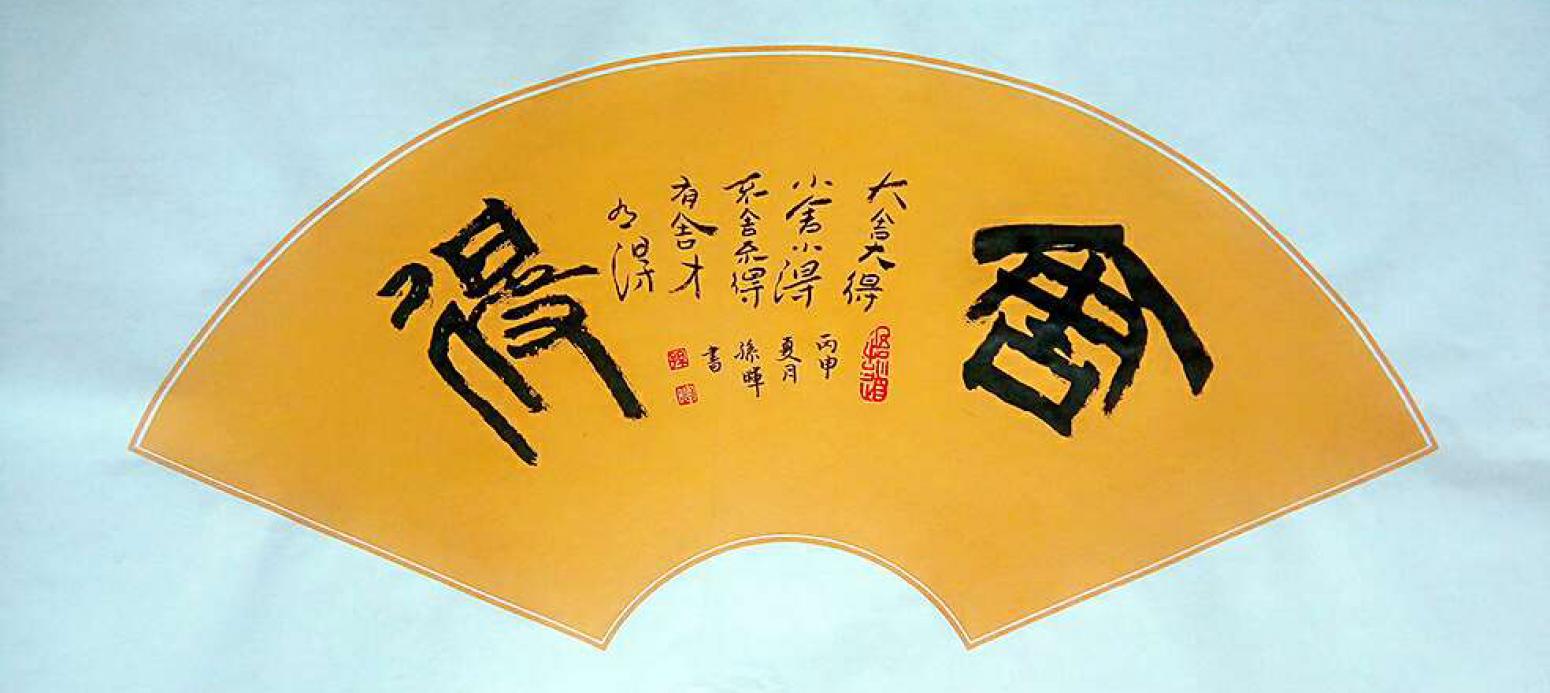 舍
大舍大得
小舍小得
不舍不得
有舍才
有得
丙申
夏月
孫暉
書
得